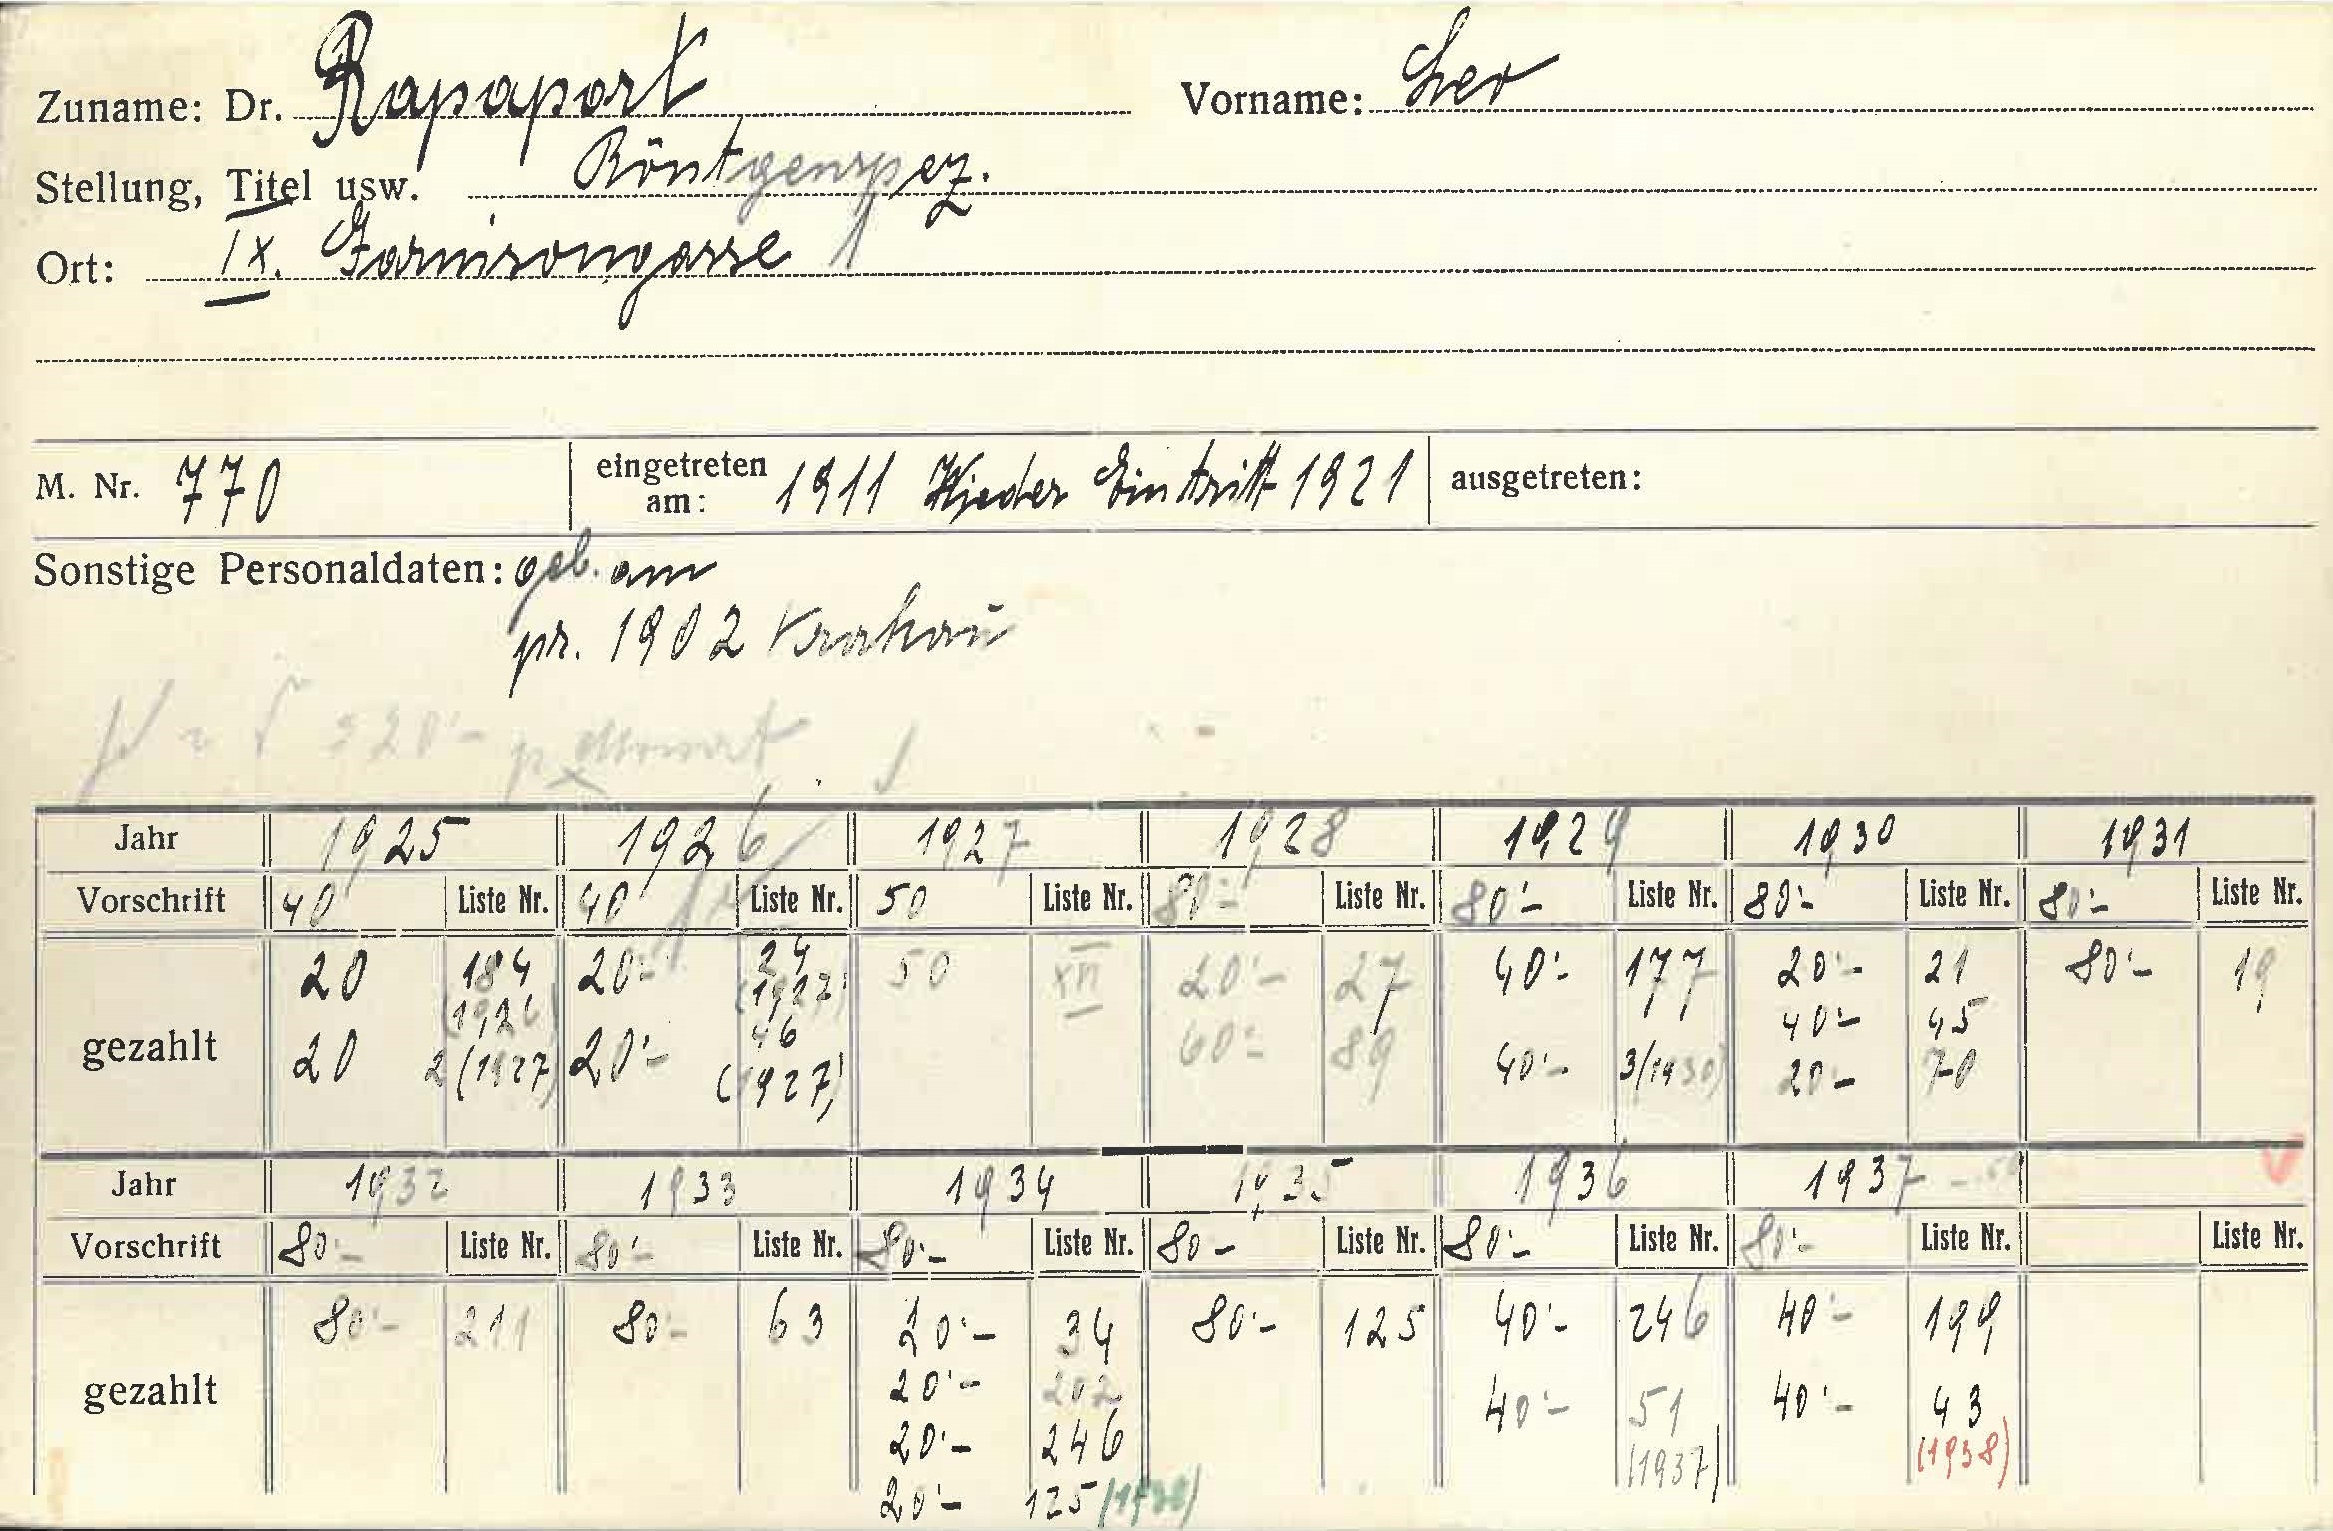 Zuname: Dr. Rapaport Vorname: Leo
Stellung, Titel usw. Röntgenspez.
Ort: IX. Garnisongasse 1
M. Nr. 770 eingetreten am: 1911 Wieder Eintritt 1921 ausgetreten:
Sonstige Personaldaten: geb. am
pr. 1902 Krakau
320'-
Jahr 1925 1926 1927 1928 1929 1930 1931
Vorschrift 40 Liste Nr. 40 Liste Nr. 50 Liste Nr. 80'- Liste Nr. 80'- Liste Nr. 80'- Liste Nr. 80'- Liste Nr.
gezahlt
20 184 20'- 24 50 XII 20'- 27 40'- 177 20'- 21 80'- 19
(1926) (1927) 40'- 45
20 2 (1927) 20'- 46 (1927) 60'- 89 40'- 3/(1930) 20'- 70
Jahr 1932 1933 1934 1935 1936 1937
Vorschrift 80'- Liste Nr. 80'- Liste Nr. 80'- Liste Nr. 80- Liste Nr. 80'- Liste Nr. 80'- Liste Nr. Liste Nr.
gezahlt
80'- 211 80'- 63 20'- 34 80'- 125 40'- 246 40'- 199
20'- 202 40'- 51 40'- 43
20'- 246 (1937) (1938)
20'- 125